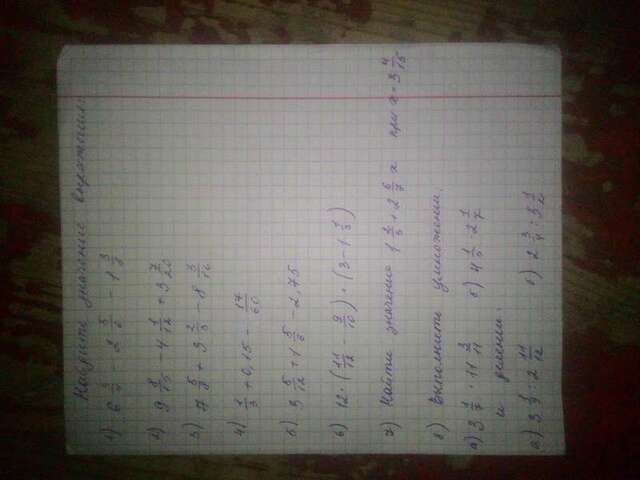 Найдите значение выражения
1) 6 - 2 5/6 - 1 3/8
2) 9 /15 - 4 1/12 + 3 7/20
3) 7 5/8 + 9 2/3 - 8 3/16
4) 1/3 + 0,15 - 17/60
5) 3 5/12 + 1 5/6 - 2,75
6) 12 · (11/12 - 9/10) + (3 - 1 1/3)
7) Найти значение 1 + 2 6/7 x при x = 3 4/15
8) Выполнить умножение
а) 3 1/7 · 11 2/11 б) 4 1/5 · 2 1/7
и деление:
а) 3 1/3 : 2 11/12 б) 2 3/4 : 3 1/2